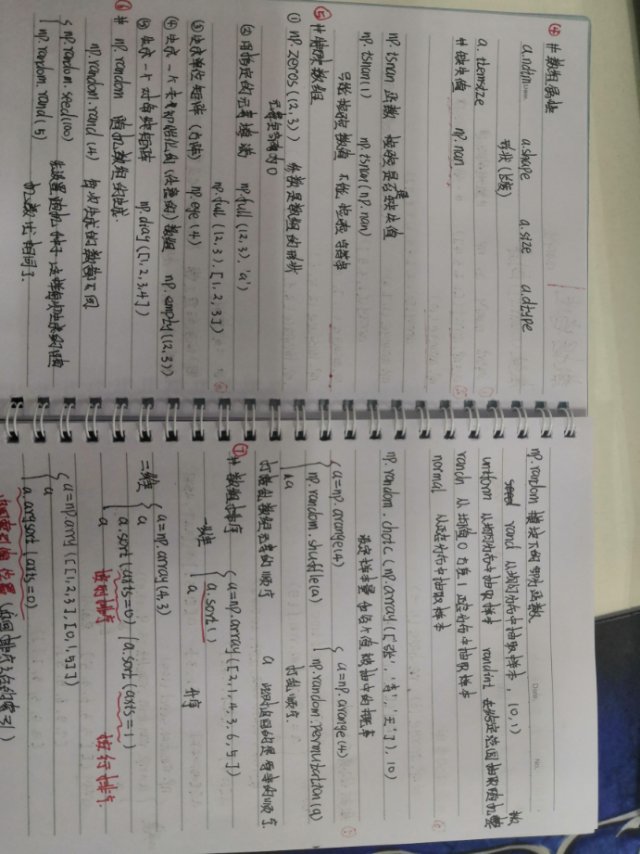 ④ # 数组属性
a.ndim a.shape a.size a.dtype
形状(长度)
a.itemsize
# 缺失值 np.nan
np.isnan 函数 检验是否是缺失值
np.isnan(1) np.isnan(np.nan)
只能检验数值 不能检验字符串
⑤ # 创建数组
① np.zeros((2,3)) 参数是数组的形状
元素全部为0
② 用指定的元素填满 np.full((2,3),'a')
np.full((2,3),[1,2,3])
③ 生成单位矩阵(方阵) np.eye(4)
④ 生成一个未初始化的(类空的)数组 np.empty((2,3))
⑤ 生成一个对角线矩阵 np.diag([1,2,3,4])
⑥ # np.random 随机数组的生成
np.random.rand(4) 每次生成的数值不同
np.random.seed(100)
np.random.rand(5)
Date. No.
np.random 模块下的 函数
rand 从均匀分布中抽取样本, [0,1)
uniform 从均匀分布中抽取样本 randint 在给定范围抽取随机整数
randn 从均值0方差1正态分布中抽取样本
normal 从正态分布中抽取样本
np.random.choic(np.array(['张','李','王']),10)
a=np.arange(4) a=np.arange(4)
np.random.shuffle(a) np.random.permutation(a)
a 打乱顺序
打乱数组元素的顺序 a 返回的是原本的顺序
⑦ # 数组排序 a=np.array([2,1,4,3,6,5])
一维 a.sort() 升序
a
二维 a=np.array(4,3)
a
a.sort(axis=0) / a.sort(axis=1)
a 按列排序 按行排序
a=np.array([[1,2,3],[0,1,5]])
a
a.argsort(axis=0)